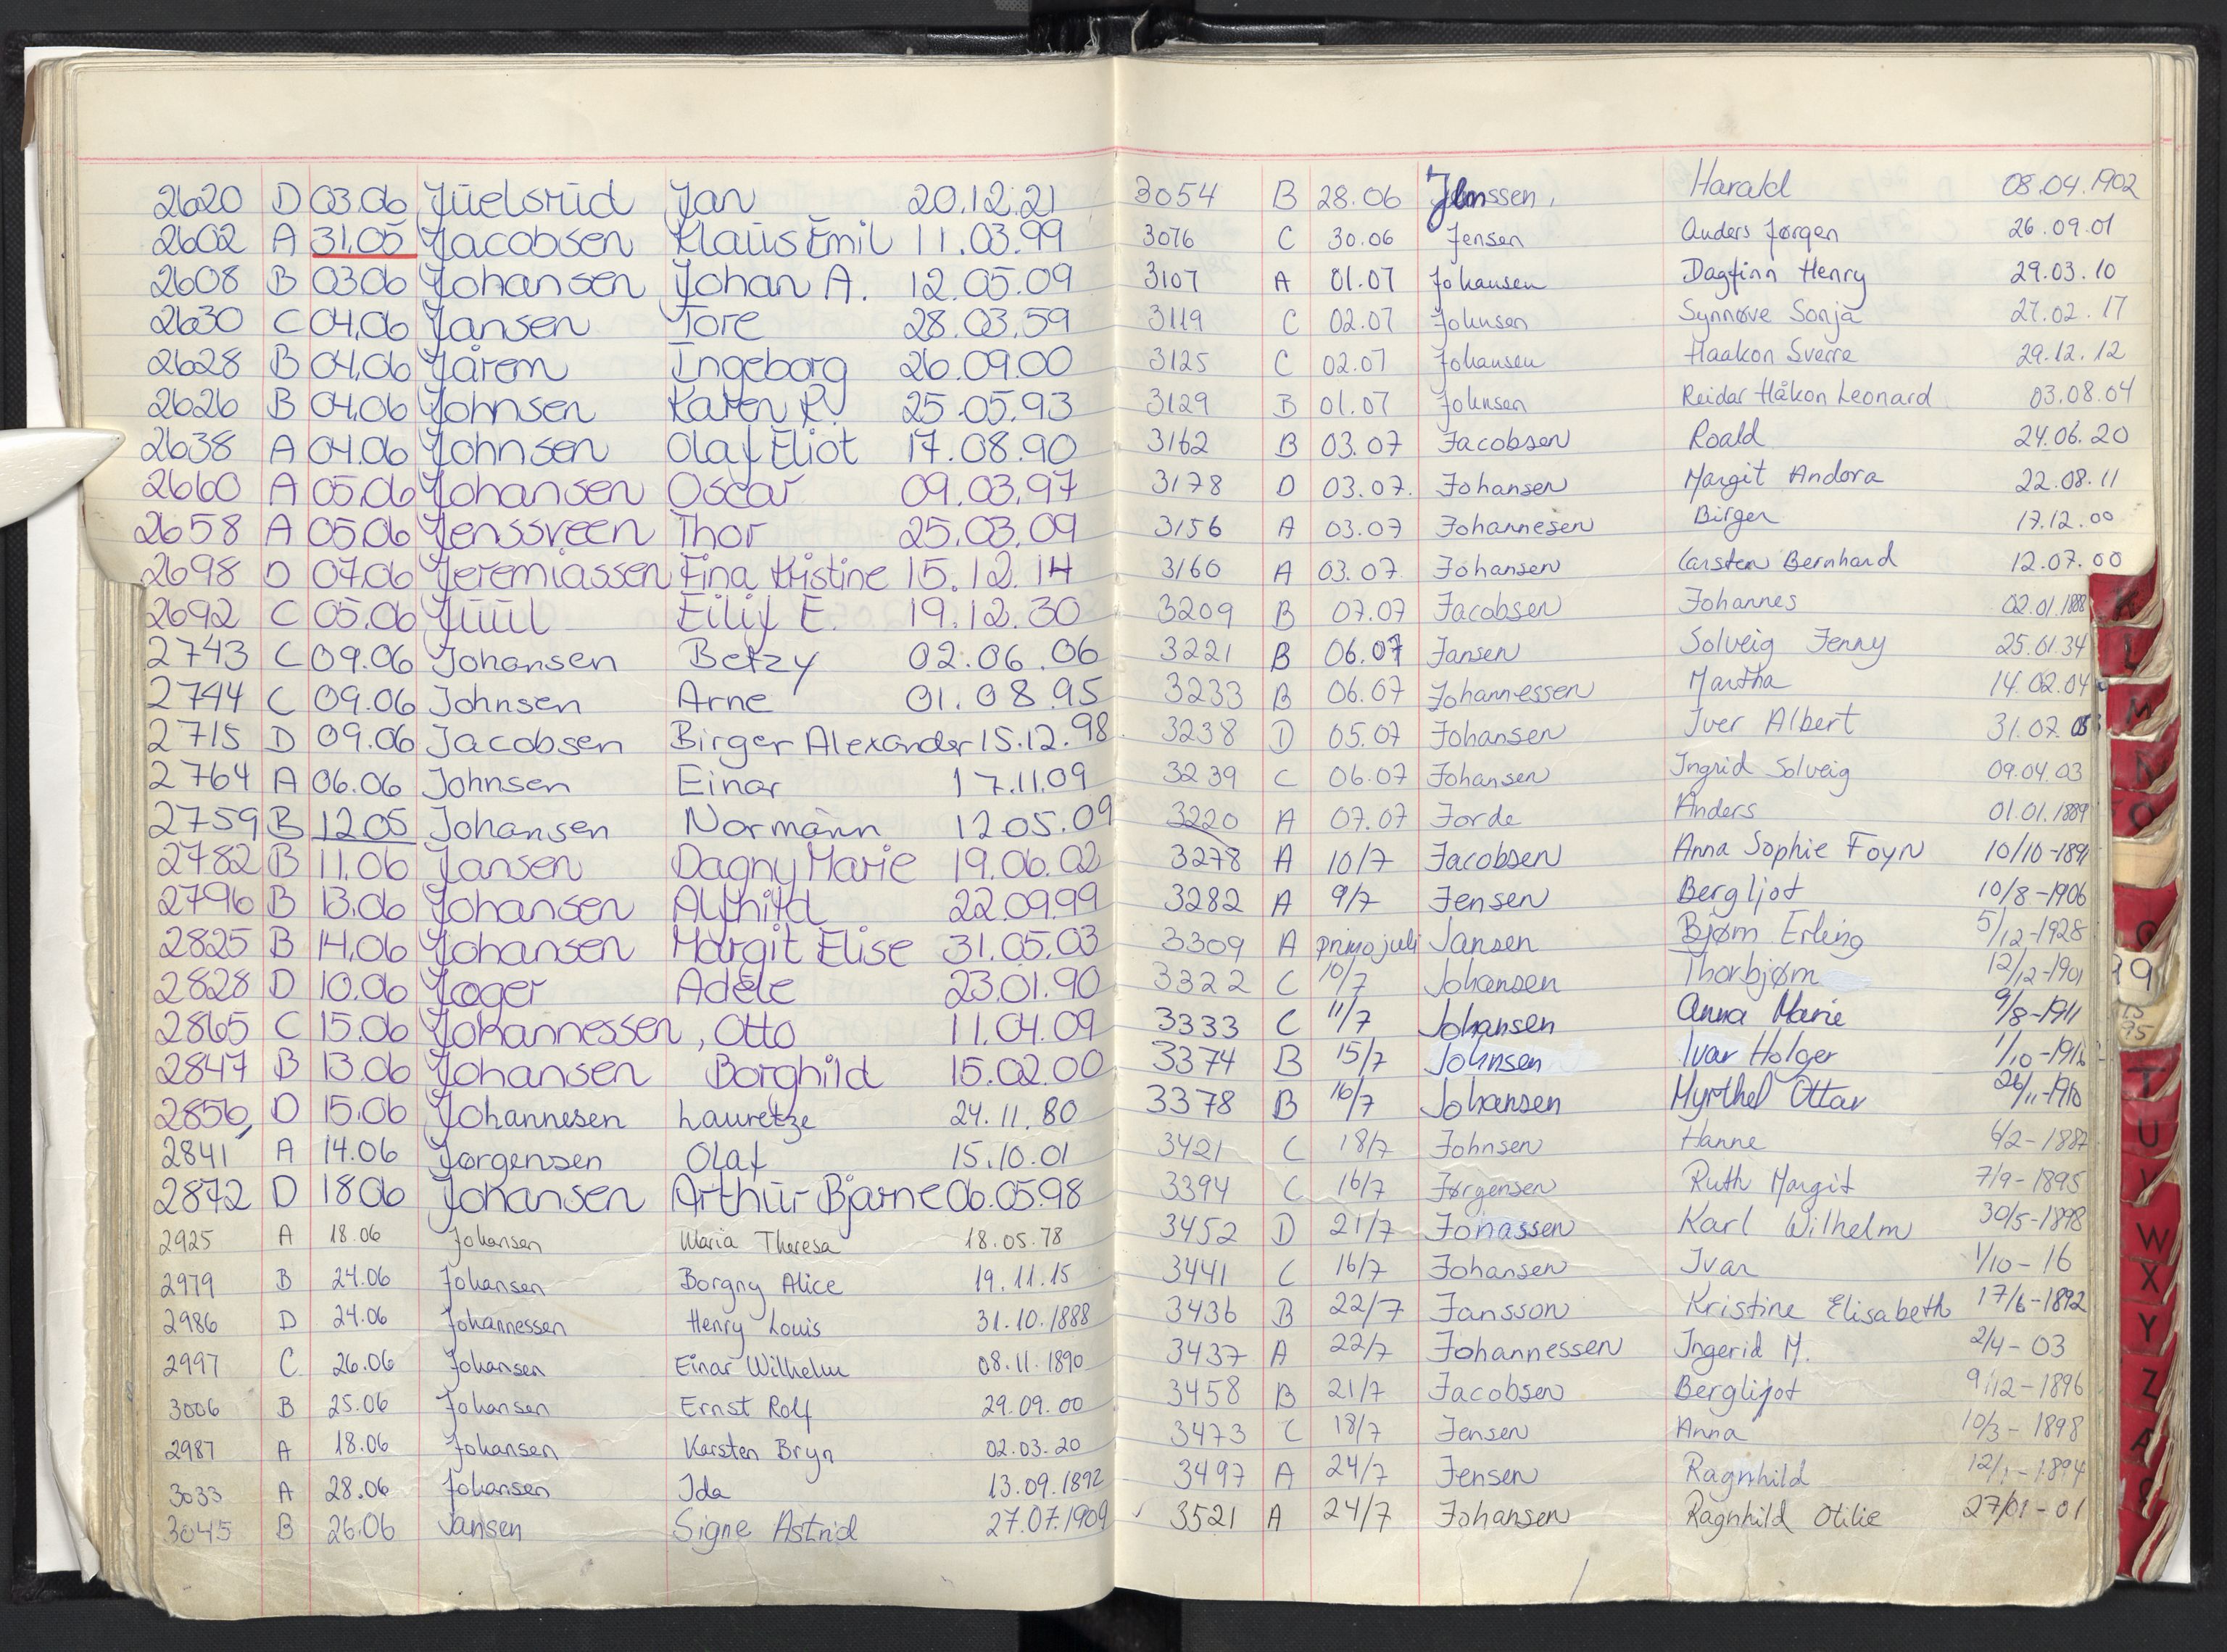 2620 D 03.06 Juelsrud Jan 20.12.21
2602 A 31.05 Jacobsen Klaus Emil 11.03.99
2608 B 03.06 Johansen Johan A. 12.05.09
2630 C 04.06 Jansen Tore 28.03.59
2628 B 04.06 Jårem Ingeborg 26.09.00
2626 B 04.06 Johnsen Karen R. 25.05.93
2638 A 04.06 Johnsen Olaf Eliot 17.08.90
2660 A 05.06 Johansen Oscar 09.03.97
2658 A 05.06 Jenssveen Thor 25.03.09
2698 D 07.06 Jeremiassen Fina Kristine 15.12.14
2692 C 05.06 Juul Eilif E. 19.12.30
2743 C 09.06 Johansen Betzy 02.06.06
2744 C 09.06 Johnsen Arne 01.08.95
2715 D 09.06 Jacobsen Birger Alexander 15.12.98
2764 A 06.06 Johnsen Einar 17.11.09
2759 B 12.05 Johansen Normann 12.05.09
2782 B 11.06 Jansen Dagny Marie 19.06.02
2796 B 13.06 Johansen Alfhild 22.09.99
2825 B 14.06 Johansen Margit Elise 31.05.03
2828 D 10.06 Jæger Adele 23.01.90
2865 C 15.06 Johannessen, Otto 11.04.09
2847 B 13.06 Johansen Borghild 15.02.00
2856 D 15.06 Johannesen Lauretze 24.11.80
2841 A 14.06 Jørgensen Olaf 15.10.01
2872 D 18.06 Johansen Arthur Bjarne 06.05.98
2925 A 18.06 Johansen Maria Theresa 18.05.78
2979 B 24.06 Johansen Borgny Alice 19.11.15
2986 D 24.06 Johannessen Henry Louis 31.10.1888
2997 C 26.06 Johansen Einar Wilhelm 08.11.1890
3006 B 25.06 Johansen Ernst Rolf 29.09.00
2987 A 18.06 Johansen Karsten Bryn 02.03.20
3033 A 28.06 Johansen Ida 13.09.1892
3045 B 26.06 Jansen Signe Astrid 27.07.1909
3054 B 28.06 Harald 08.04.1902
3076 C 30.06 Jensen Anders Jørgen 26.09.01
3107 A 01.07 Johansen Dagfinn Henry 29.03.10
3119 C 02.07 Johnsen Synnøve Sonja 27.02.17
3125 C 02.07 Johansen Haakon Sverre 29.12.12
3129 B 01.07 Johnsen Reidar Håkon Leonard 03.08.04
3162 B 03.07 Jacobsen Roald 24.06.20
3178 D 03.07. Johansen Margit Andora 22.08.11
3156 A 03.07 Johannesen Birger 17.12.00
3160 A 03.07 Johansen Carsten Bernhard 12.07.00
3209 B 07.07 Jacobsen Johannes 02.01.1888
3221 B 06.07 Jansen Solveig Jenny 25.01.34
3233 B 06.07 Johannessen Martha 14.02.04
3238 D 05.07 Johansen Iver Albert 31.07.
3239 C 06.07 Johansen Ingrid Solveig 09.04.03
3220 A 07.07 Jorde Anders 01.01.1889
3278 A 10/7 Jacobsen Anna Sophie Foyn 10/10-189
3282 A 9/7 Jensen Bergljot 10/8-1906
3309 A primo juli Jansen Bjørn Erling 5/12-1928
3322 C 10/7 Johansen Thorbjørn 12/12-1901
3333 C 11/7 Johansen Anna Marie 9/8-1911
3374 B 15/7 Johnsen Ivar Holger 1/10-1916
3378 B 16/7 Johansen Myrthel Ottar 26/11-1910
3421 C 18/7 Johnsen Hanne 6/2-1887
3394 C 16/7 Jørgensen Ruth Margit 7/9-1895
3452 D 21/7 Jonassen Karl Wilhelm 30/5-1898
3441 C 16/7 Johansen Ivar 1/10-16
3436 B 22/7 Jansson Kristine Elisabeth 17/6-1892
3437 A 22/7 Johannessen Ingerid M. 2/4-03
3458 B 21/7 Jacobsen Berglijot 9/12-1896
3473 C 18/7 Jensen Anna 10/3-1898
3497 A 24/7 Jensen Ragnhild
3521 A 24/7 Johansen Ragnhild Otilie 27/01-01
K
L
M
N
O
T
U
V
W
X
Y
Z